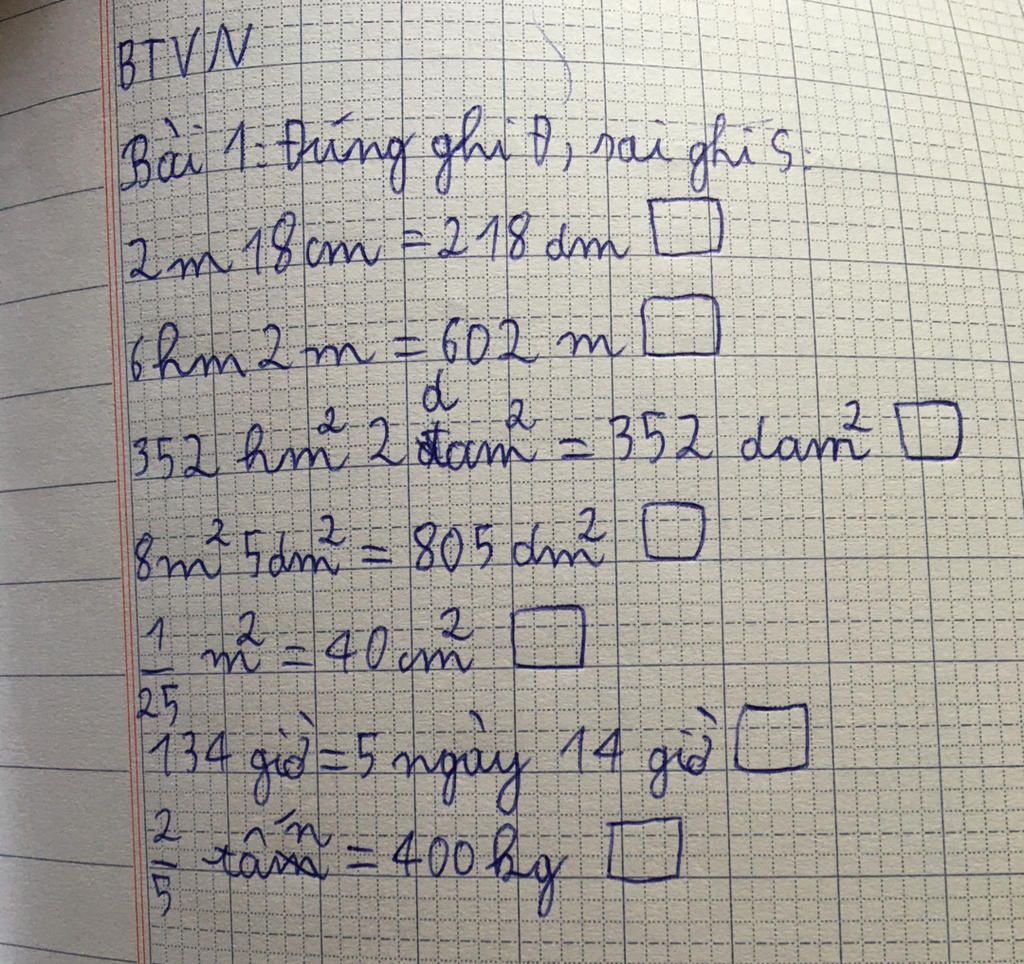 BTVN
Bài 1: Đúng ghi Đ, sai ghi S:
2m 18cm = 218 dm
6hm 2 m = 602 m
352 hm² 2 dam² = 352 dam²
8m² 5dm² = 805 dm²
1/25 m² = 40 cm²
134 giờ = 5 ngày 14 giờ
2/5 tấn = 400 kg